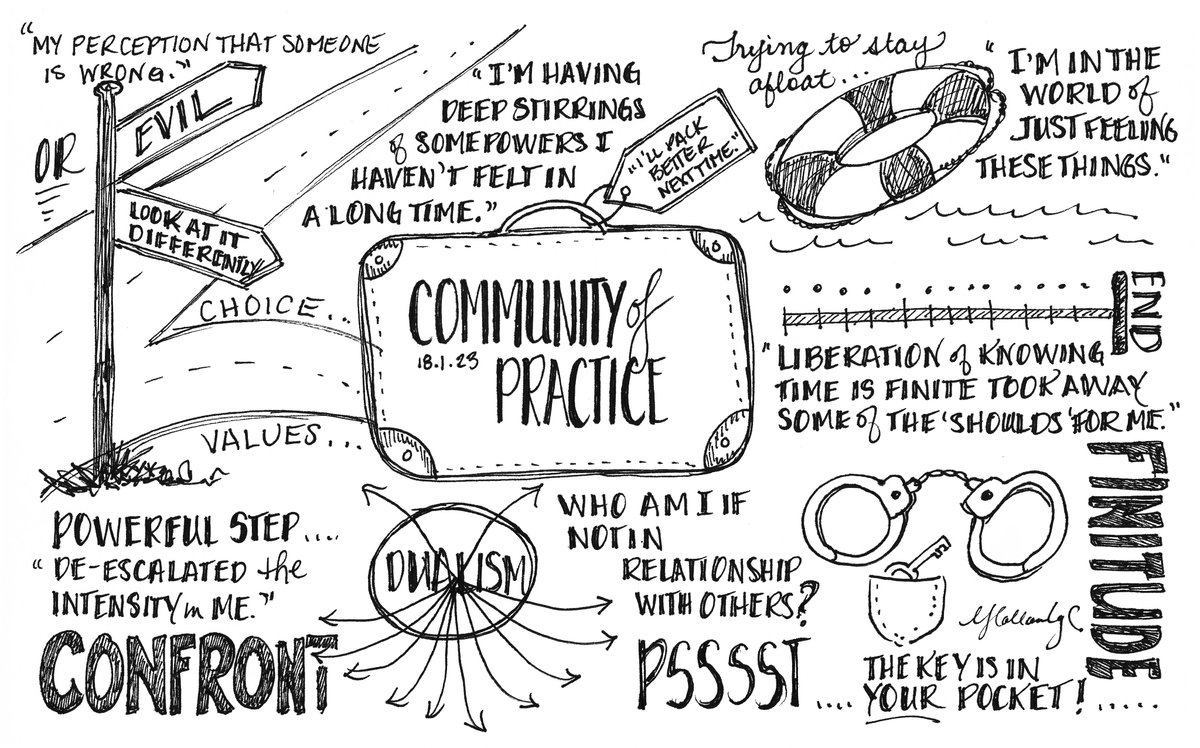 "MY PERCEPTION THAT SOMEONE
IS WRONG."
EVIL
OR
LOOK AT IT
DIFFERENTLY
CHOICE...
VALUES...
"I'M HAVING
DEEP STIRRINGS
of SOME POWERS I
HAVEN'T FELT IN
A LONG TIME."
"I'LL PACK
BETTER
NEXT TIME."
COMMUNITY of
18.1.23
PRACTICE
Trying to stay
afloat...
"I'M IN THE
WORLD of
JUST FEELING
THESE THINGS."
END
"LIBERATION of KNOWING
TIME IS FINITE TOOK AWAY
SOME of THE 'SHOULDS' FOR ME."
FINITUDE
POWERFUL STEP....
"DE-ESCALATED the
INTENSITY in ME."
CONFRONT
DUALISM
WHO AM I IF
NOT IN
RELATIONSHIP
WITH OTHERS?
PSSSST....
THE KEY IS IN
YOUR POCKET!.....